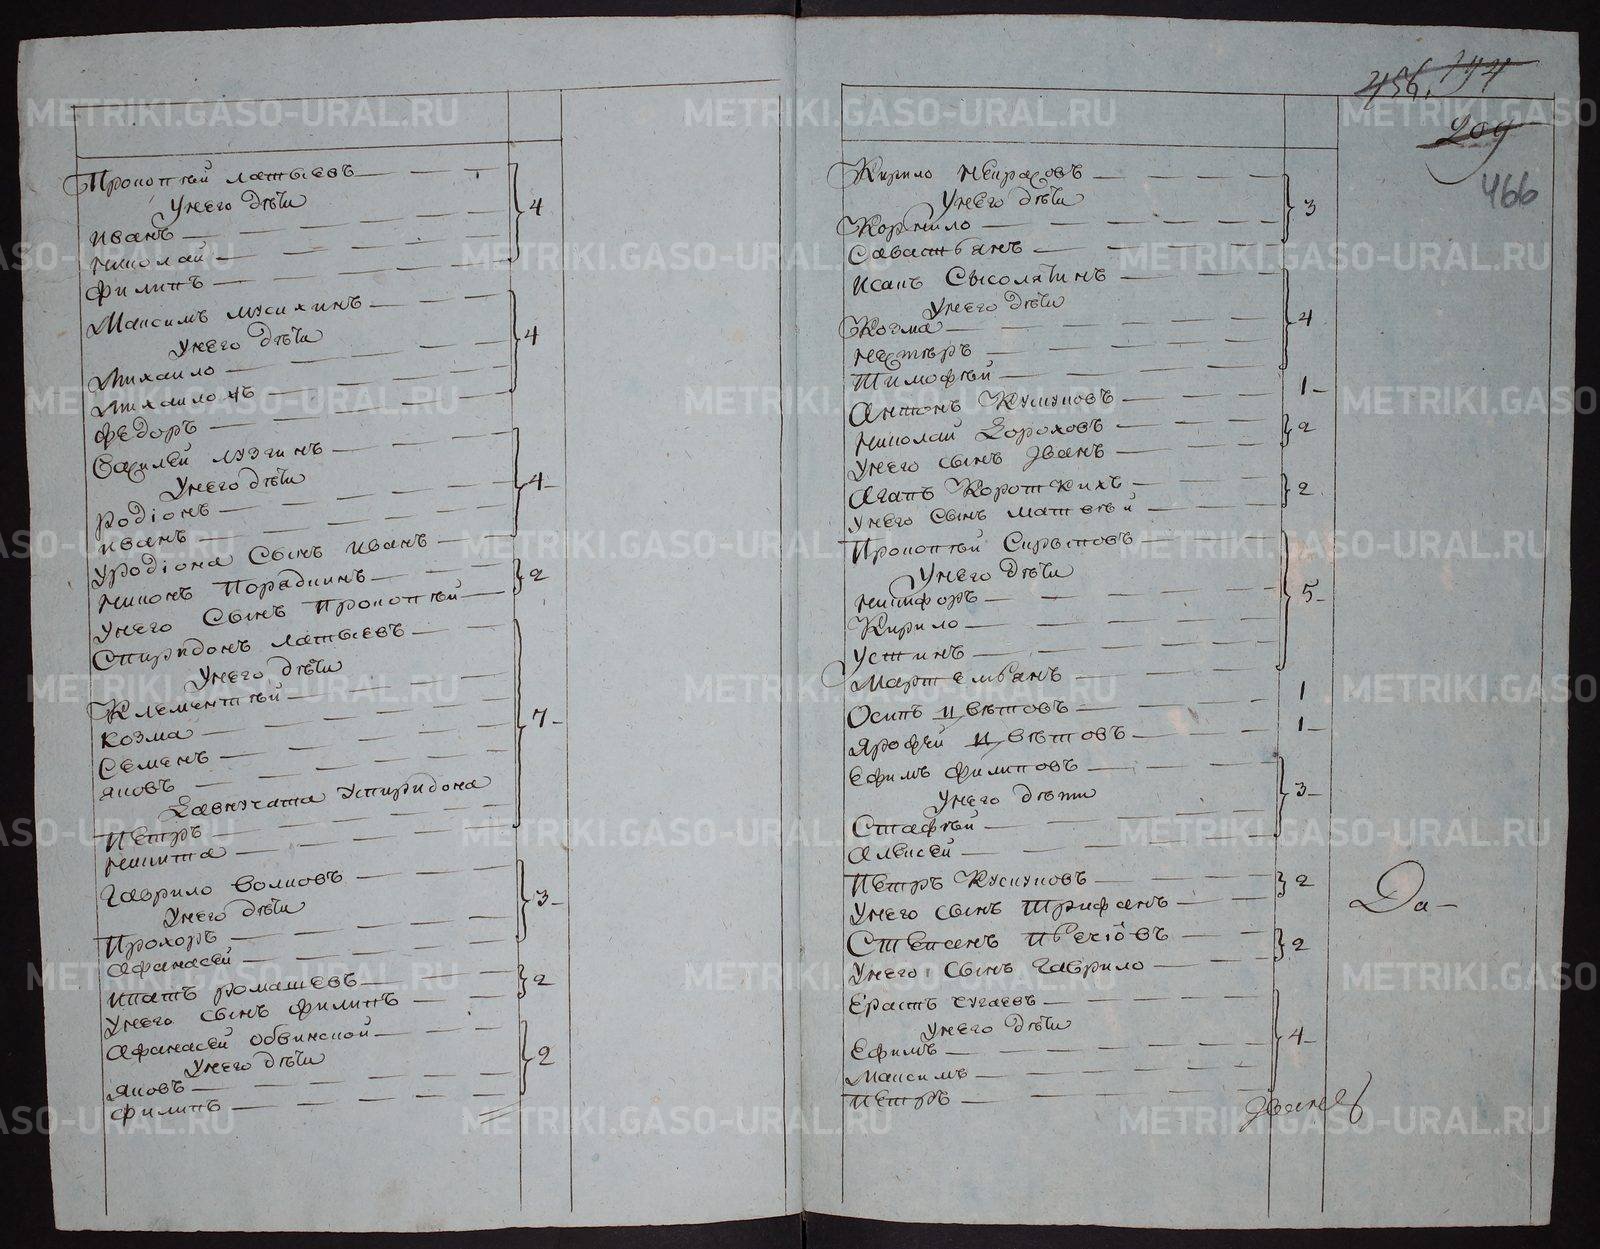 Прокопѣй латышевъ 4
Унего дѣти
иванъ
николай
филипъ
Максимъ мусихинъ 4
Унего дѣти
михаило
михаиложъ
федоръ
Василей музгинъ 4
Унего дѣти
родіонъ
иванъ
Уродіона Сынъ иванъ
никонъ Порадкинъ 2
Унего Сынъ Прокопѣй
Спиридонъ латышевъ 7
Унего дѣти
Клементѣй
козма
Семенъ
яковъ
Завнучата Успиридона
Петръ
никита
Гаврило волковъ 3
Унего дѣти
Прохоръ
афанасей
ипатъ ромашевъ 2
Унего сынъ филипъ
афанасей обвинской 2
Унего дѣти
яковъ
филипъ
456. 
209
466
Кирило некрасовъ 3
Унего дѣти
Корнило
Савастьянъ
исакъ Сысолятинъ 4
Унего дѣти
Козма
нестеръ
Тимофѣй
антонъ Кусуковъ 1
николай Зороховъ 2
Унего сынъ Иванъ
агапъ Коротких 2
Унего Сынъ матвѣй
Прокопѣй Сирытовъ 5
Унего дѣти
никифоръ
Кирило
Устинъ
Мартемьянъ
Осипъ цвѣтовъ 1
ярофей цвѣтовъ 1
Ефимъ филиповъ 3
Унего дѣти
Стафѣй
алексей
Петръ Кусуковъ 2
Унего сынъ Трифанъ
Степанъ 2
Унего Сынъ гаврило
Ерастъ чугаевъ 4
Унего дѣти
Ефимъ
Максимъ
Петръ
Да
METRIKI.GASO-URAL.RU